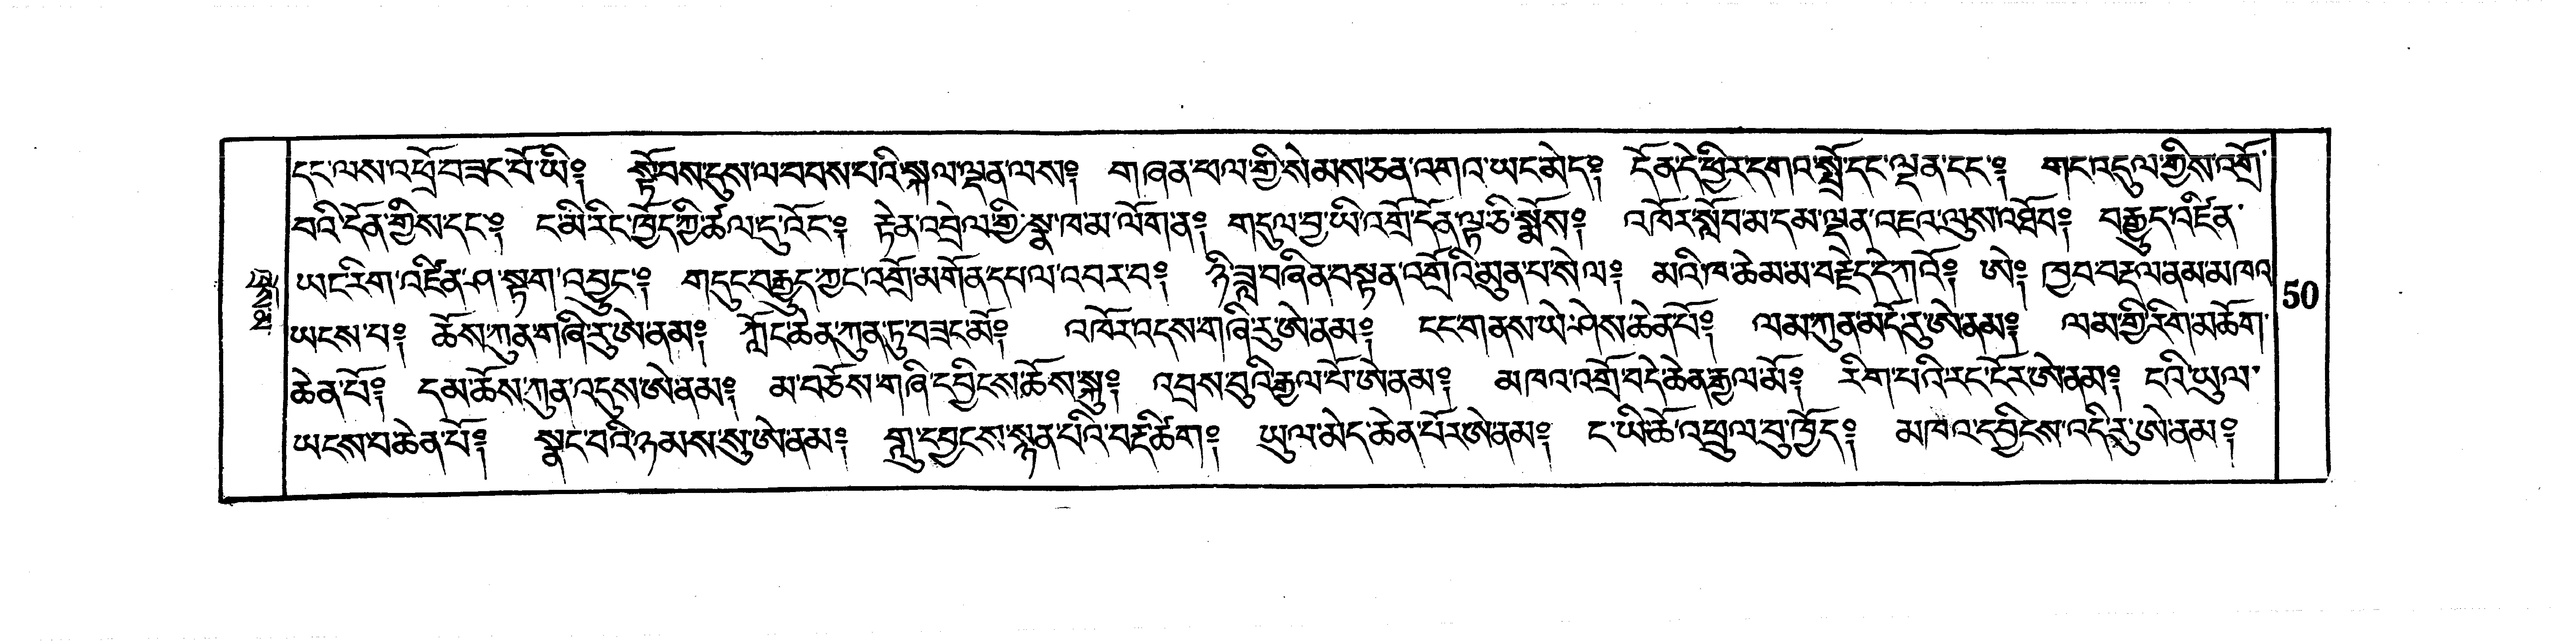 ངང་ལས་འཕྲོ་བཟང་པོ་ཡི༔ སྟོབས་དུས་ལ་བབས་པའི་སྐལ་ལྡན་ལས༔ གཞན་ཕལ་གྱི་སེམས་ཅན་འགའ་ཡང་མེད༔ དོན་དེ་ཕྱིར་དགའ་སྤྲོ་དང་ལྡན་དང་༔ གང་འདུལ་གྱིས་འགྲོ་
བའི་དོན་གྱིས་དང་༔ ང་མི་རིང་ཁྱོད་ཀྱི་ཚལ་དུ་འོང་༔ རྟེན་འབྲེལ་གྱི་སྣ་ཁ་མ་ལོག་ན༔ གདུལ་བྱ་ཡི་འགྲོ་དོན་ལྟ་ཅི་སྨོས༔ འཁོར་སློབ་མ་དམ་ལྡན་འཇའ་ལུས་འཐོབ༔ བརྒྱུད་འཛིན་
ཡང་རིག་འཛིན་ཤ་སྟག་འབྱུང་༔ གདུང་བརྒྱུད་ཀྱང་འགྲོ་མགོན་དཔལ་འབར་བ༔ ཉི་ཟླ་བཞིན་བསྟན་འགྲོའི་མུན་པ་སེལ༔ མའི་ཁ་ཆེམ་མ་བརྗེད་དེ་ཀ་བོ༔ ཨེ༔ ཁྱབ་བརྡལ་ནམ་མཁའ་
ཡངས་པ༔ ཆོས་ཀུན་གཞི་རུ་ཨེ་ནམ༔ ཀློང་ཆེན་ཀུན་ཏུ་བཟང་མོ༔ འཁོར་འདས་གཞི་རུ་ཨེ་ནམ༔ ངང་གནས་ཡེ་ཤེས་ཆེན་པོ༔ ལམ་ཀུན་མདོ་རུ་ཨེ་ནམ༔ ལམ་གྱི་རིག་མཆོག་
ཆེན་པོ༔ དམ་ཆོས་ཀུན་འདུས་ཨེ་ནམ༔ མ་བཅོས་གཞི་དབྱིངས་ཆོས་སྐུ༔ འབྲས་བུའི་རྒྱལ་པོ་ཨེ་ནམ༔ མཁའ་འགྲོ་བདེ་ཆེན་རྒྱལ་མོ༔ རིག་པའི་རང་ངོར་ཨེ་ནམ༔ ངའི་ཡུལ་
ཡངས་བ་ཆེན་པོ༔ སྣང་བའི་ཉམས་སུ་ཨེ་ནམ༔ གླུ་དབྱངས་སྙན་པའི་བརྡ་ཚིག༔ ཡུལ་མེད་ཆེན་པོར་ཨེ་ནམ༔ ང་ཡི་ཆོ་འཕྲུལ་བུ་ཁྱོད༔ མཁའ་དབྱིངས་འདི་རུ་ཨེ་ནམ༔
50